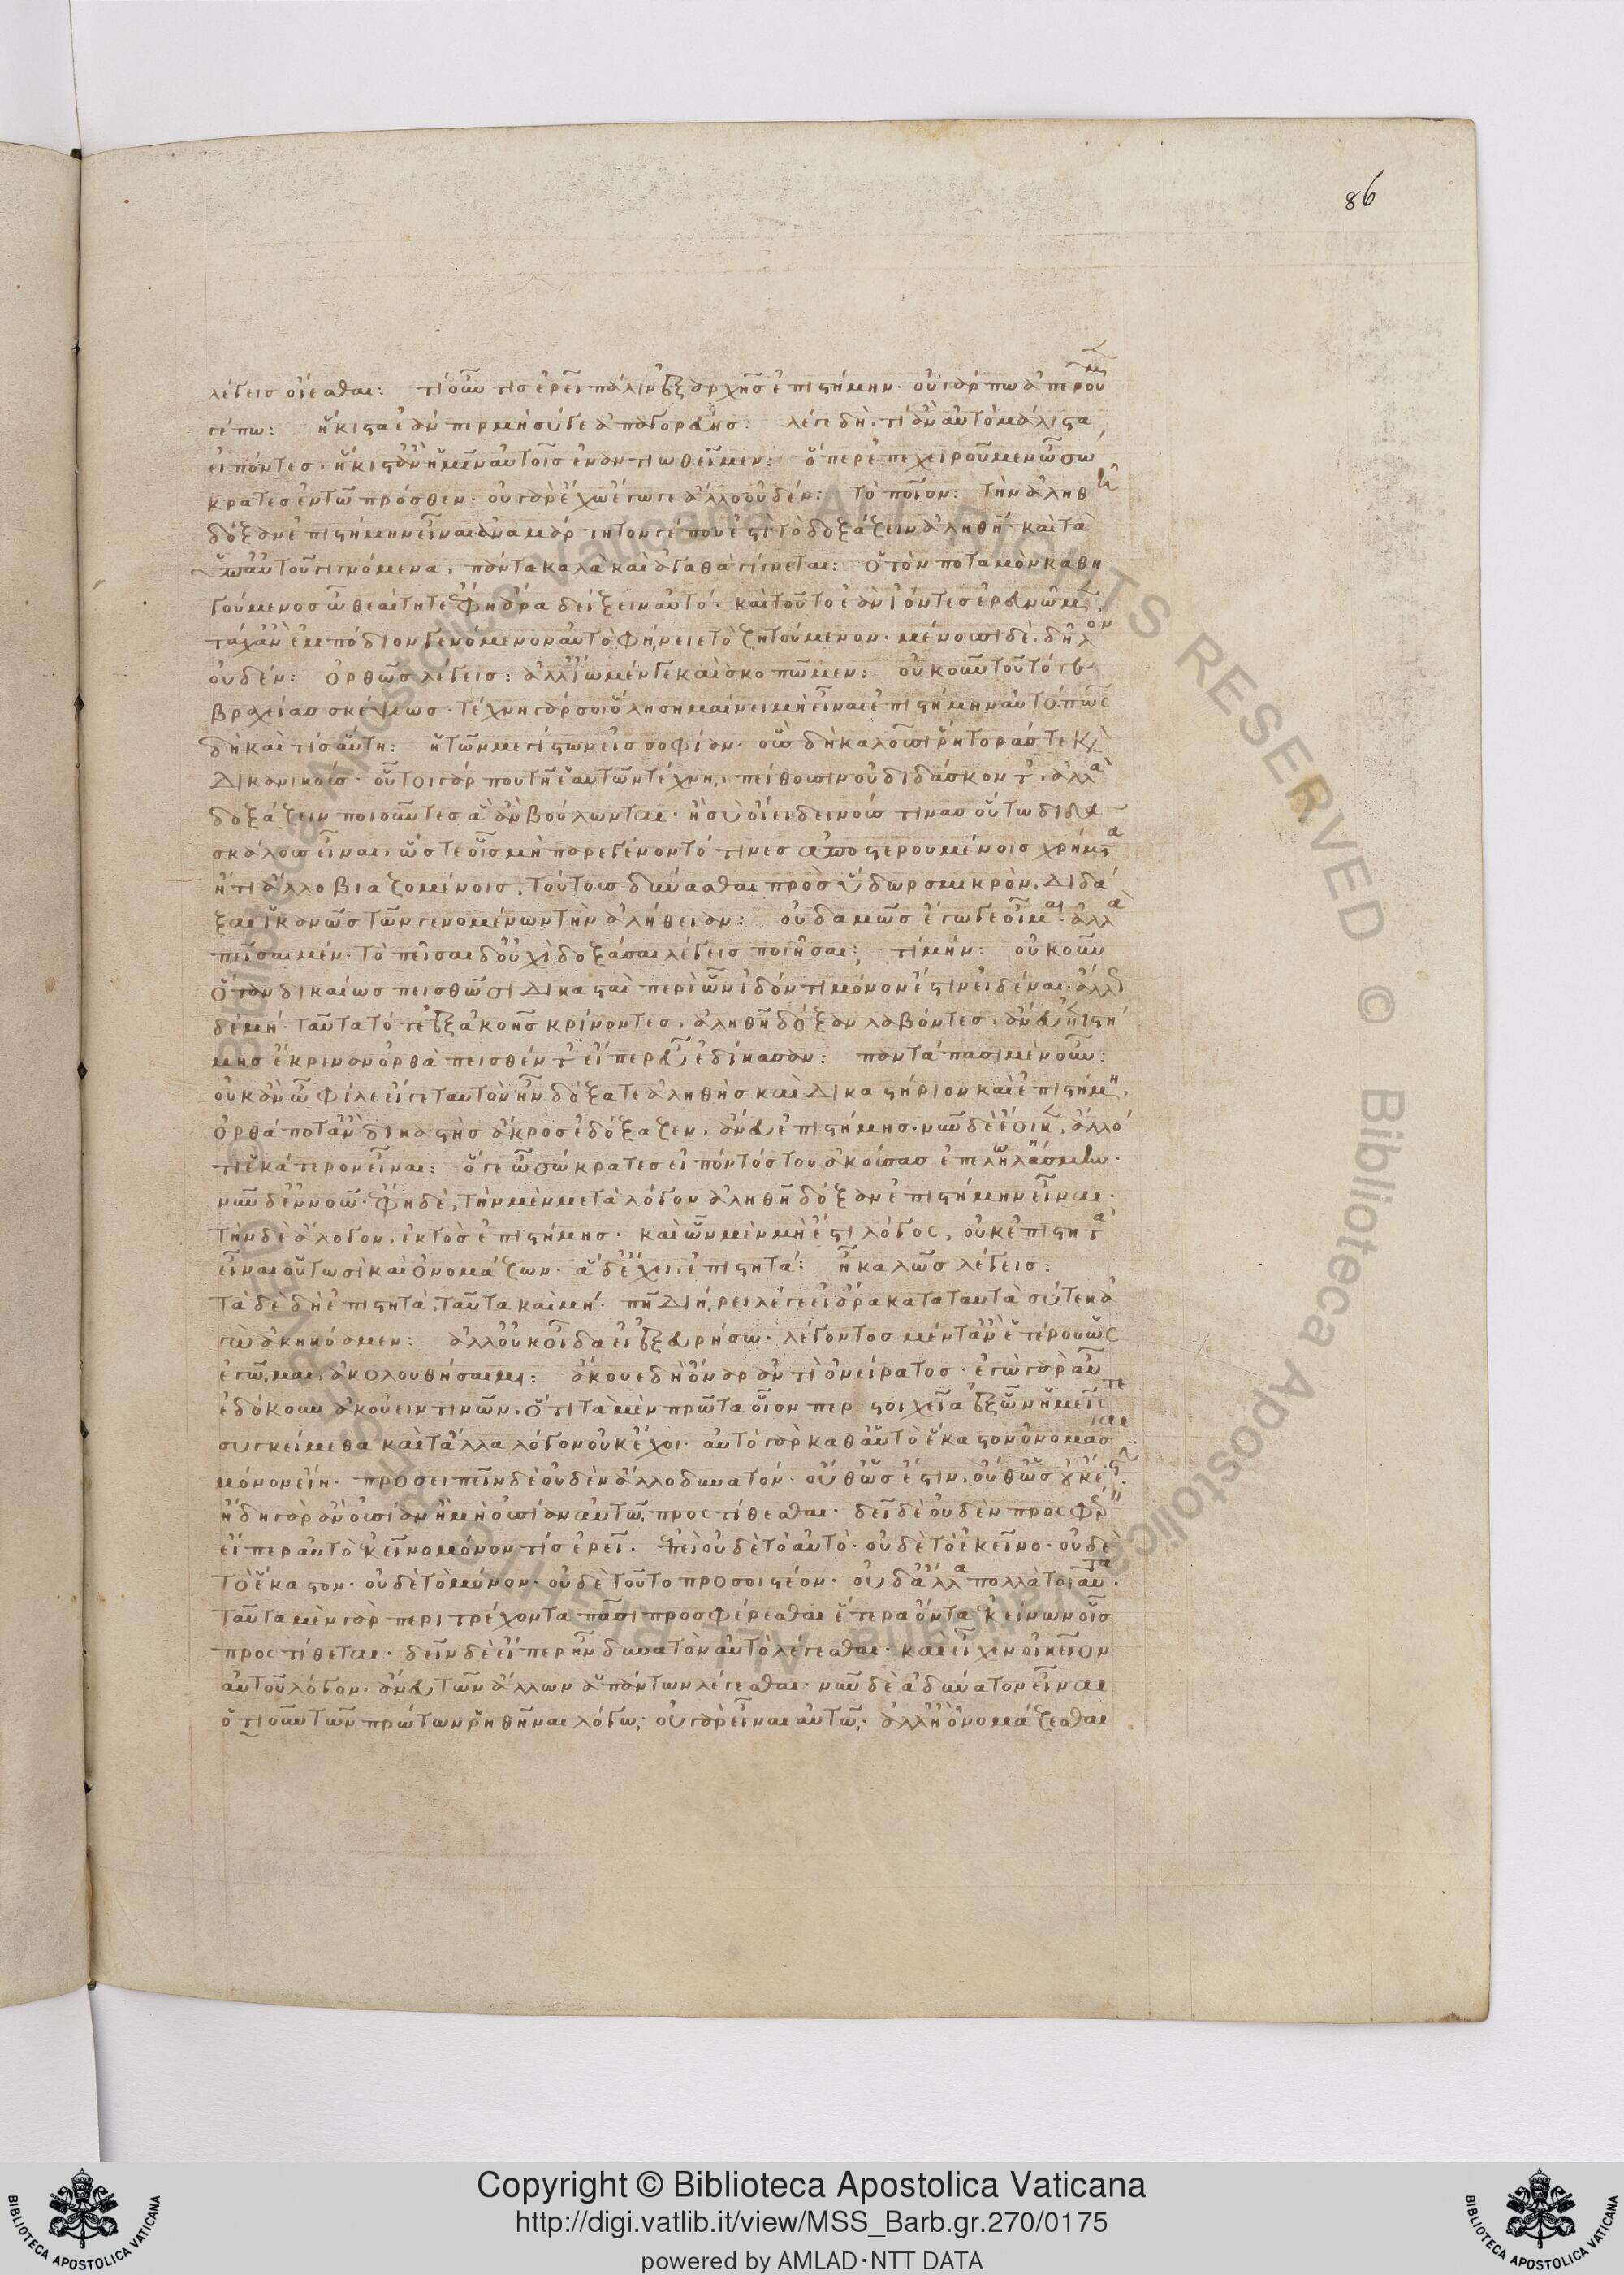 86
λέγεις οἴεσθαι: τί οὖν τις ἐρεῖ πάλιν ἐξ ἀρχῆς ἐπιστήμην· οὐ γάρ πω ἀπεροῦμεν
γέ πω: ἥκιστα ἐάν περ μὴ σύ γε ἀπαγορεύῃς: λέγε δή, τί ἂν αὐτὸ μάλιστα
εἰπόντες, ἥκιστ' ἂν ἡμῖν αὐτοῖς ἐναντιωθεῖμεν: ὅπερ ἐπεχειροῦμεν ὦ σώ
κρατες ἐν τῷ πρόσθεν· οὐ γὰρ ἔχω ἔγωγε ἄλλο οὐδέν: τὸ ποῖον: τὴν ἀληθῆ
δόξαν ἐπιστήμην εἶναι· ἀναμάρτητόν γέ που ἐστὶ τὸ δοξάζειν ἀληθῆ· καὶ τὰ
ὑπ' αὐτοῦ γιγνόμενα, πάντα καλὰ καὶ ἀγαθὰ γίγνεται: ὁ τὸν ποταμὸν καθη
γούμενος ὦ θεαίτητε ἔφη ἄρα δείξειν αὐτό· καὶ τοῦτο ἐὰν ἰόντες ἐρευνῶμεν,
τάχ' ἂν ἐμπόδιον γενόμενον αὐτὸ φήνειε τὸ ζητούμενον· μένουσι δὲ, δῆλον
οὐδέν: ὀρθῶς λέγεις: ἀλλ' ἴωμέν γε καὶ σκοπῶμεν: οὐκοῦν τοῦτό γε
βραχείας σκέψεως· τέχνη γάρ σοι ὅλη σημαίνει μὴ εἶναι ἐπιστήμην αὐτό: πῶς
δὴ καὶ τίς αὕτη: ἡ τῶν μεγίστων εἰς σοφίαν· οὓς δὴ καλοῦσι ῥήτοράς τε καὶ
δικανικούς· οὗτοι γάρ που τῇ ἑαυτῶν τέχνῃ, πείθουσιν οὐ διδάσκοντες, ἀλλὰ
δοξάζειν ποιοῦντες ἃ ἂν βούλωνται· ἢ σὺ οἴει δεινούς τινας οὕτω διδα
σκάλους εἶναι, ὥστε οἷς μὴ παρεγένοντό τινες ἀποστερουμένοις χρήματα
ἤ τι ἄλλο βιαζομένοις, τούτοις δύνασθαι πρὸς ὕδωρ σμικρὸν, διδά
ξαι ἱκανῶς τῶν γενομένων τὴν ἀλήθειαν: οὐδαμῶς ἔγωγε οἶμαι· ἀλλὰ
πεῖσαι μέν· τὸ πεῖσαι δ' οὐχὶ δοξάσαι λέγεις ποιῆσαι; τί μήν: οὐκοῦν
ὅταν δικαίως πεισθῶσι δικασταὶ περὶ ὧν ἰδόντι μόνον ἔστιν εἰδέναι· ἄλλως
δὲ μή· ταῦτα τότε ἐξ ἀκοῆς κρίνοντες, ἀληθῆ δόξαν λαβόντες, ἄνευ ἐπιστή
μης ἔκριναν ὀρθὰ πεισθέντες εἴπερ εὖ ἐδίκασαν: παντάπασι μὲν οὖν:
οὐκ ἂν ὦ φίλε εἴ γε ταυτὸν ἦν δόξα τε ἀληθὴς καὶ δικαστήριον καὶ ἐπιστήμη,
ὀρθά ποτ' ἂν δικαστὴς ἄκρος ἐδόξαζεν, ἄνευ ἐπιστήμης· νῦν δὲ ἔοικεν, ἄλλό
τι ἑκάτερον εἶναι: ὅ γε ὦ σώκρατες εἰπόντός του ἀκούσας ἐπελελήσμην·
νῦν δ' ἐννοῶ· ἔφη δὲ, τὴν μὲν μετὰ λόγου ἀληθῆ δόξαν ἐπιστήμην εἶναι·
τὴν δὲ ἄλογον, ἐκτὸς ἐπιστήμης· καὶ ὧν μὲν μή ἐστι λόγος, οὐκ ἐπιστητὰ
εἶναι οὑτωσὶ καὶ ὀνομάζων· ἃ δ' ἔχει, ἐπιστητά: ἦ καλῶς λέγεις:
τὰ δὲ δὴ ἐπιστητὰ, ταῦτα καὶ μή· πῇ διῄρει, λέγε εἰ ἄρα κατὰ ταυτὰ σύ τε κἀ
γὼ ἀκηκόαμεν: ἀλλ' οὐκ οἶδα εἰ ἐξευρήσω· λέγοντος μέντ' ἂν ἑτέρου ὡς
ἐγᾦμαι, ἀκολουθήσαιμι: ἄκουε δὴ ὄναρ ἀντὶ ὀνείρατος· ἐγὼ γὰρ αὖ
ἐδόκουν ἀκούειν τινῶν, ὅτι τὰ μὲν πρῶτα οἷον περ στοιχεῖα ἐξ ὧν ἡμεῖς τε
συγκείμεθα καὶ τἄλλα λόγον οὐκ ἔχοι· αὐτὸ γὰρ καθ' αὑτὸ ἕκαστον ὀνομάσαι
μόνον εἴη· προσειπεῖν δὲ οὐδὲν ἄλλο δυνατόν· οὔθ' ὡς ἔστιν, οὔθ' ὡς οὐκ ἔστιν·
ἤδη γὰρ ἂν οὐσίαν ἢ μὴ οὐσίαν αὐτῷ προστίθεσθαι· δεῖ δὲ οὐδὲν προσφέρειν
εἴπερ αὐτὸ ἐκεῖνο μόνον τις ἐρεῖ. ἐπεὶ οὐδὲ τὸ αὐτὸ· οὐδὲ τὸ ἐκεῖνο· οὐδὲ
τὸ ἕκαστον· οὐδὲ τὸ μόνον· οὐδὲ τοῦτο προσοιστέον· οὐδ' ἄλλα πολλὰ τοιαῦτα·
ταῦτα μὲν γὰρ περιτρέχοντα πᾶσι προσφέρεσθαι ἕτερα ὄντα ἐκείνων οἷς
προστίθεται· δεῖν δὲ εἴπερ ἦν δυνατὸν αὐτὸ λέγεσθαι· καὶ εἶχεν οἰκεῖον
αὑτοῦ λόγον, ἄνευ τῶν ἄλλων ἁπάντων λέγεσθαι· νῦν δὲ ἀδύνατον εἶναι
ὁτιοῦν τῶν πρώτων ῥηθῆναι λόγῳ· οὐ γὰρ εἶναι αὐτῷ· ἀλλ' ἢ ὀνομάζεσθαι
Copyright © Biblioteca Apostolica Vaticana
http://digi.vatlib.it/view/MSS_Barb.gr.270/0175
powered by AMLAD·NTT DATA